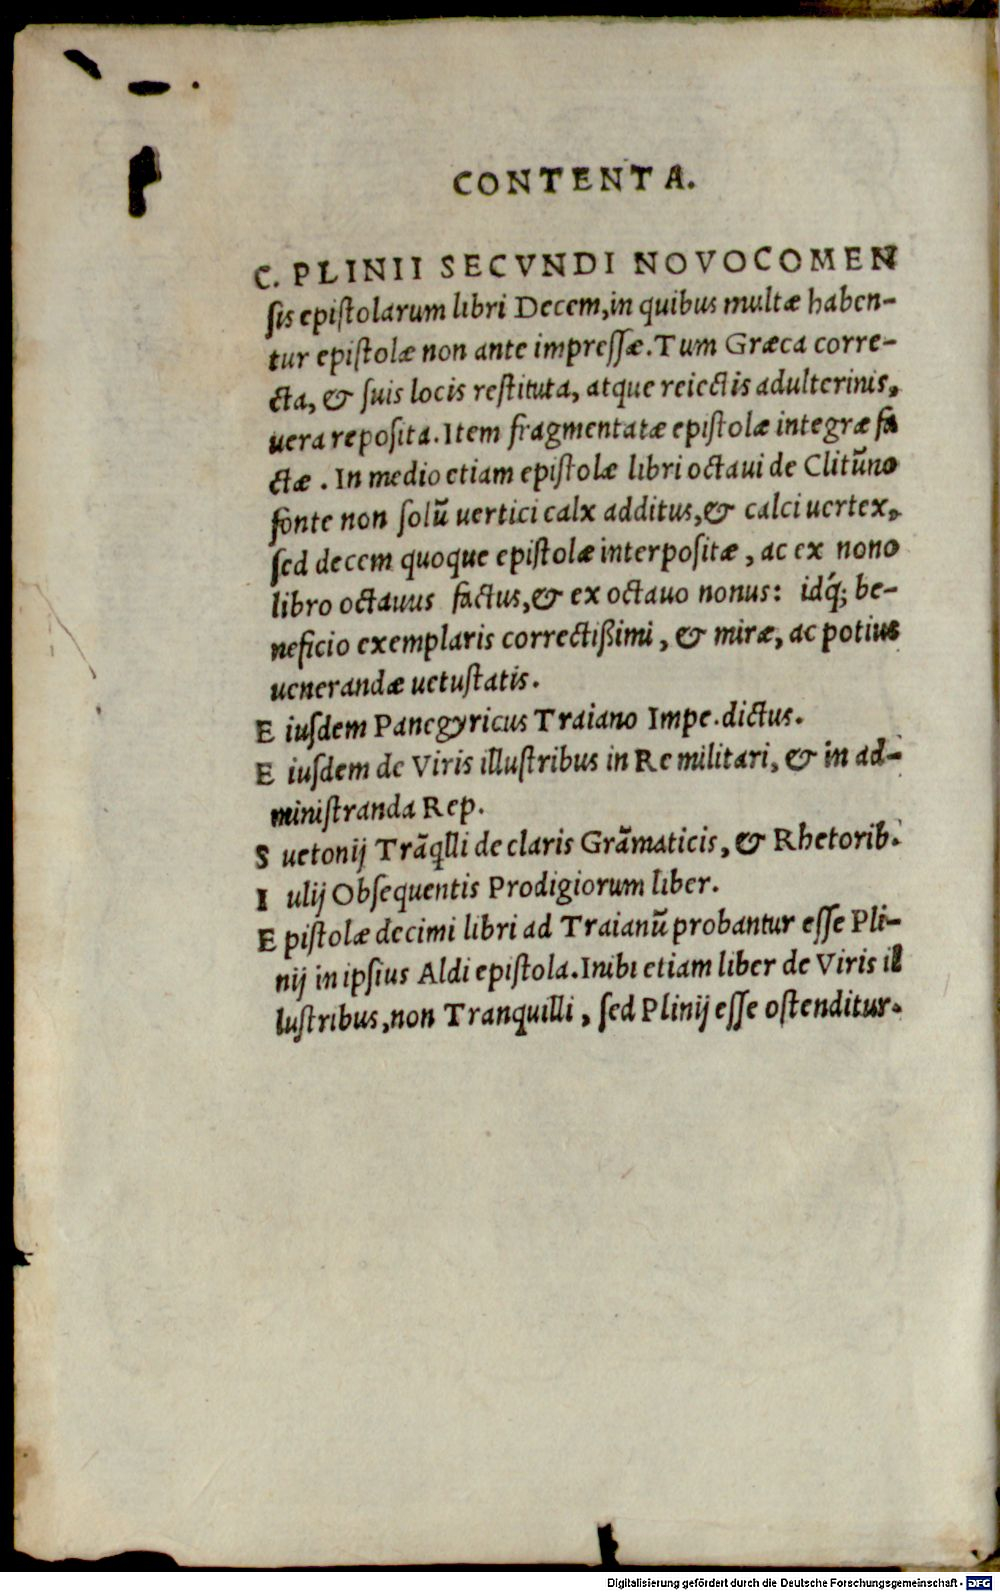 CONTENTA.
C. PLINII SECVNDI NOVOCOMEN
ſis epiſtolarum libri Decem, in quibus multæ haben-
tur epiſtolæ non ante impreſſæ. Tum Græca corre-
cta, & ſuis locis reſtituta, atque reiectis adulterinis,
uera repoſita. Item fragmentatæ epiſtolæ integræ fa
ctæ. In medio etiam epiſtolæ libri octaui de Clitũno
fonte non ſolũ uertici calx additus, & calci uertex,
ſed decem quoque epiſtolæ interpoſitæ, ac ex nono
libro octauus factus, & ex octauo nonus: idq́; be-
neficio exemplaris correctißimi, & miræ, ac potius
uenerandæ uetuſtatis.
E iuſdem Panegyricus Traiano Impe. dictus.
E iuſdem de Viris illuſtribus in Re militari, & in ad-
miniſtranda Rep.
S uetonij Trãq̃lli de claris Grãmaticis, & Rhetorib.
I ulij Obſequentis Prodigiorum liber.
E piſtolæ decimi libri ad Traianũ probantur eſſe Pli-
nij in ipſius Aldi epiſtola. Inibi etiam liber de Viris il
luſtribus, non Tranquilli, ſed Plinij eſſe oſtenditur.
Digitalisierung gefördert durch die Deutsche Forschungsgemeinschaft - DFG